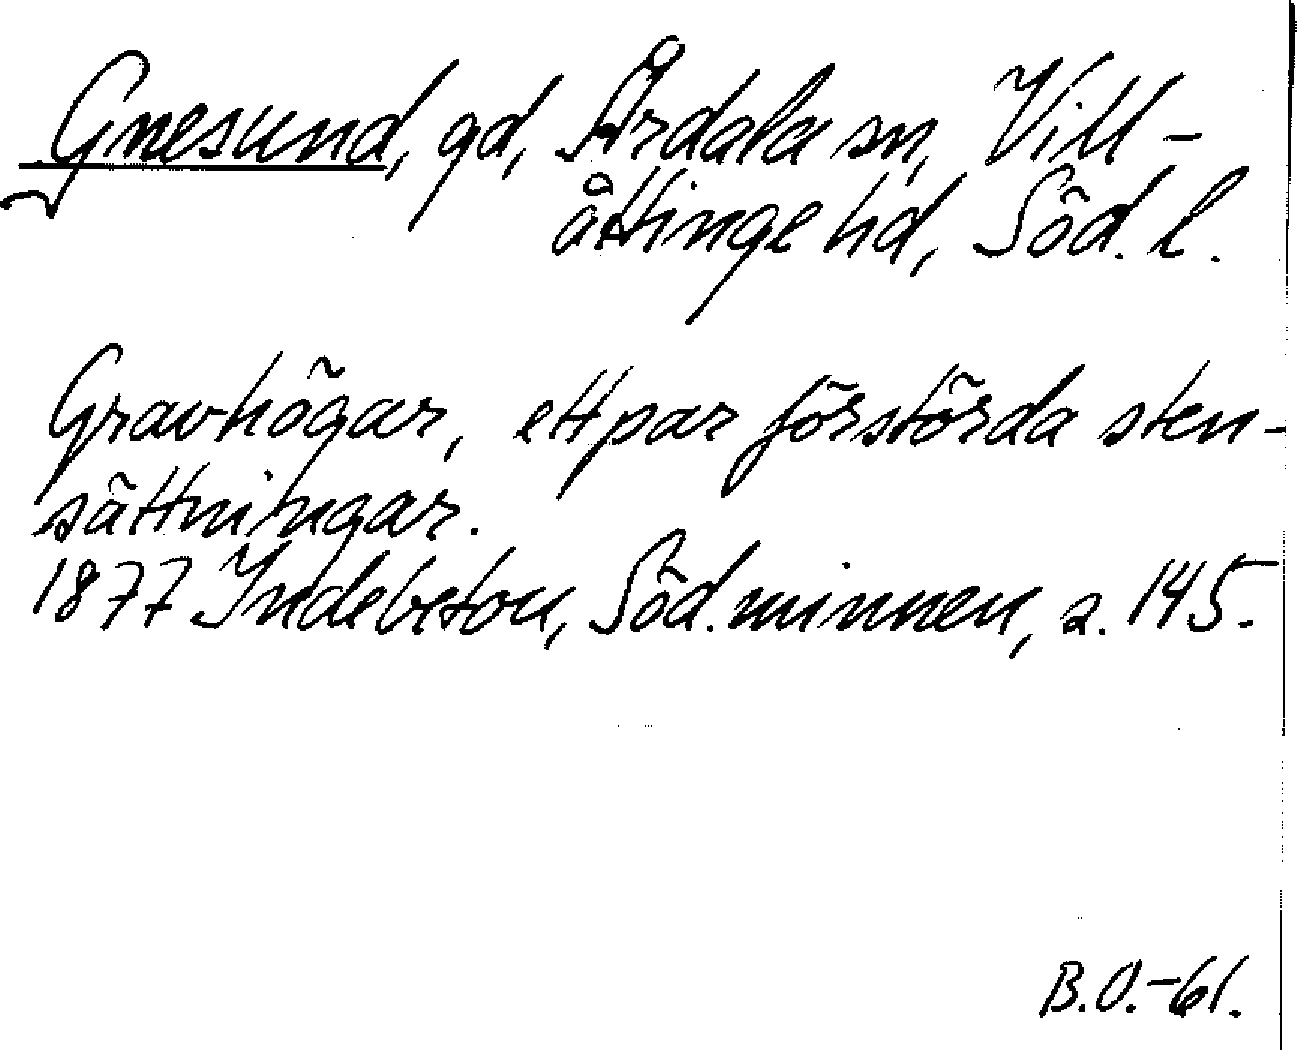 Gnesund, gd, Årdala sn, Vill-
åttinge hd, Söd. l.
Gravhögar, ett par förstörda sten-
sättningar.
1877 Indebetou, Söd. minnen, s. 145.
B.O.-61.